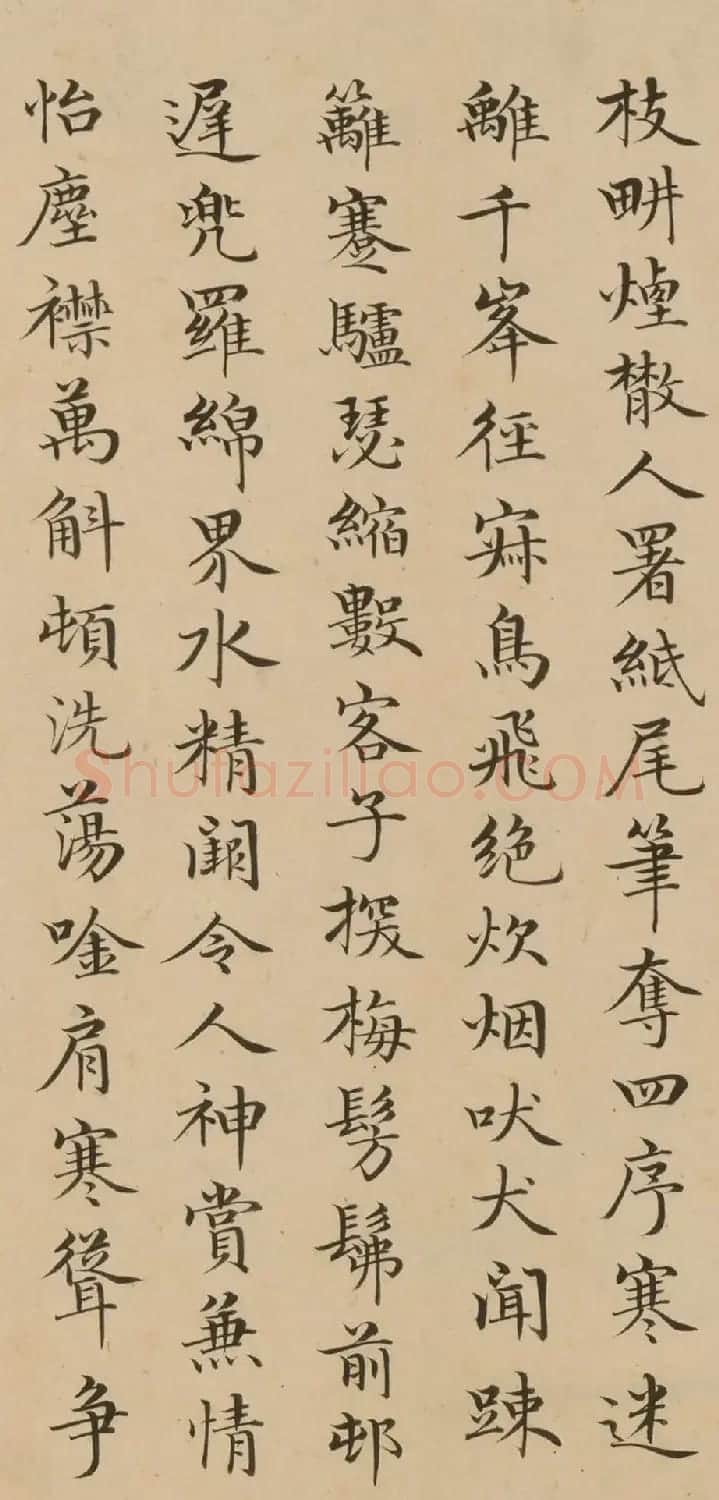 枝畊煙散人署紙尾筆奪四序寒迷
離千峯徑寂鳥飛絶炊烟吠犬聞踈
籬蹇驢瑟縮數客子探梅髣髴前邨
遲兜羅綿界水精闕令人神賞兼情
怡塵襟萬斛頓洗蕩唫肩寒聳争
Shufaziliao.COM